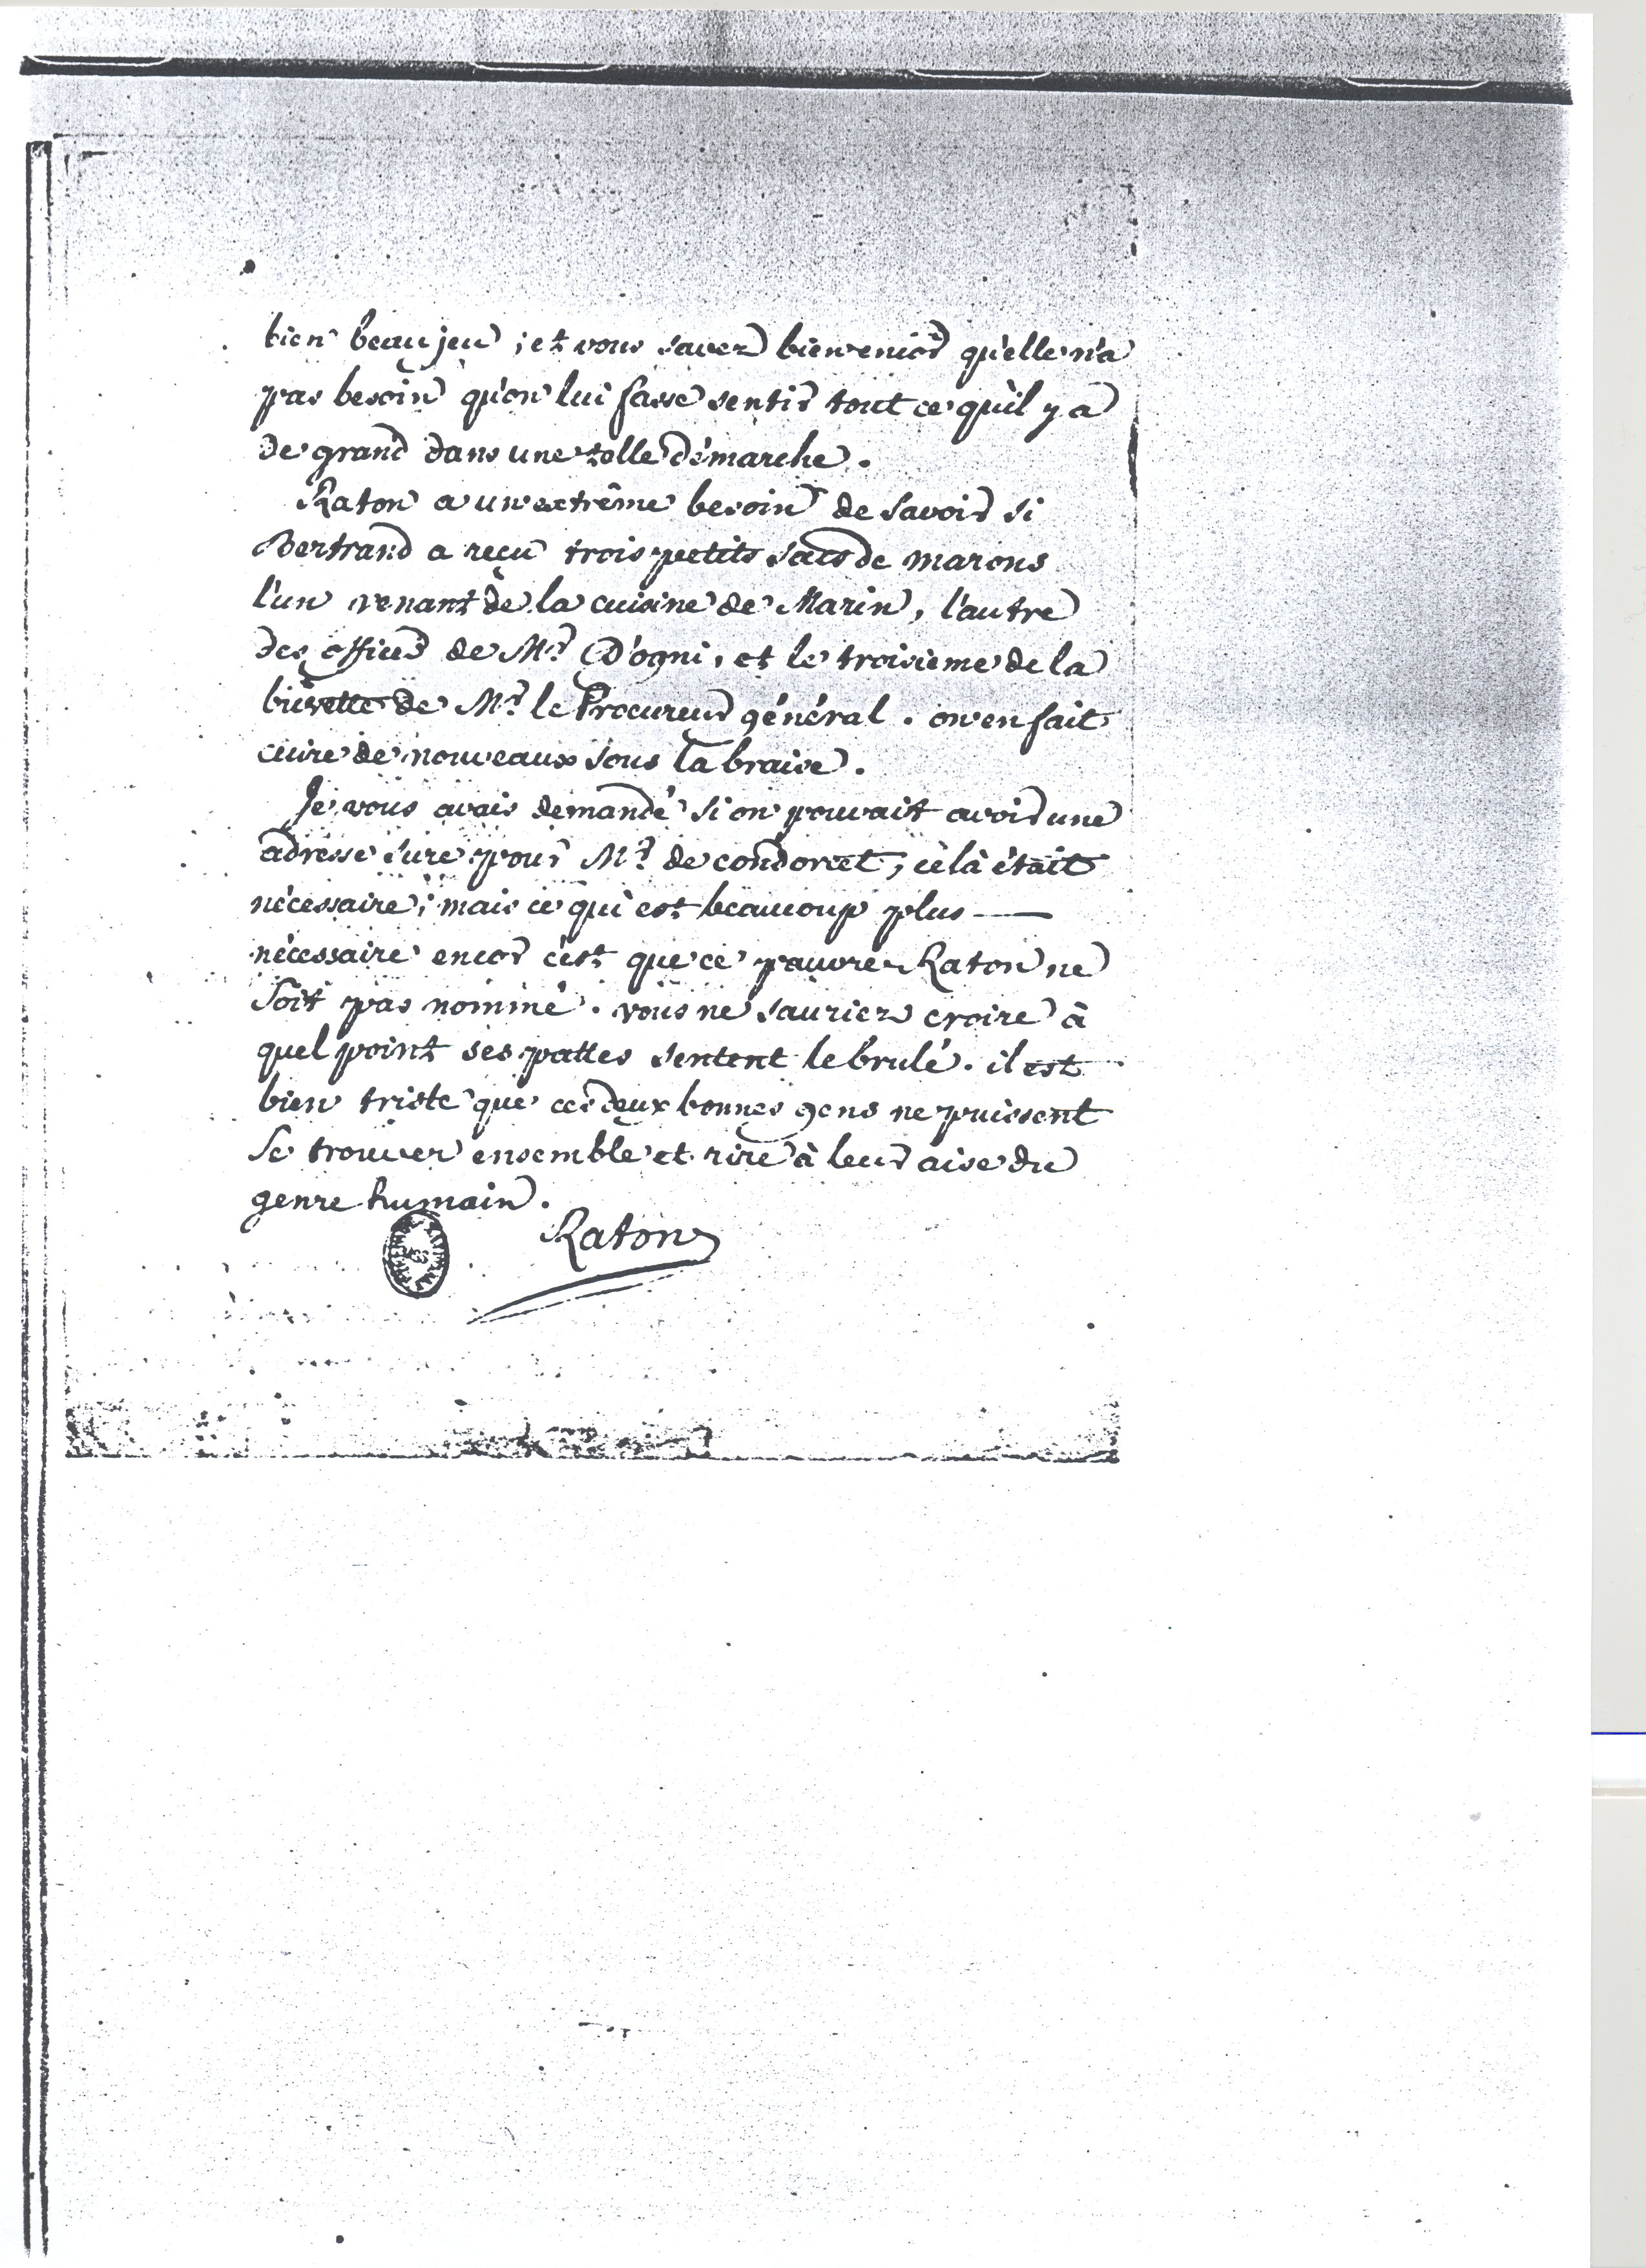 bien beau jeu ; et vous savez bien encor qu'elle n'a
pas besoin qu'on lui fasse sentir tout ce qu'il y a
de grand dans une telle démarche .
Raton a un extrême besoin de savoir si
Bertrand a reçu trois petits sacs de marons
l'un venant de la cuisine de Marin, l'autre
des offices de Mr. D'ogni, et le troisieme de la
buvette de Mr. le Procureur général . on en fait
cuire de nouveaux sous la braise .
Je vous avais demandé si on pouvait avoir une
adresse sure pour Mr. de condorcet ; celà était
nécessaire ; mais ce qui est beaucoup plus —
nécessaire encor c'est que ce pauvre Raton ne
soit pas nommé . vous ne sauriez croire à
quel point ses pattes sentent le brulé . il est
bien triste que ces deux bonnes gens ne puissent
se trouver ensemble et rire à leur aise du
genre humain .
Raton